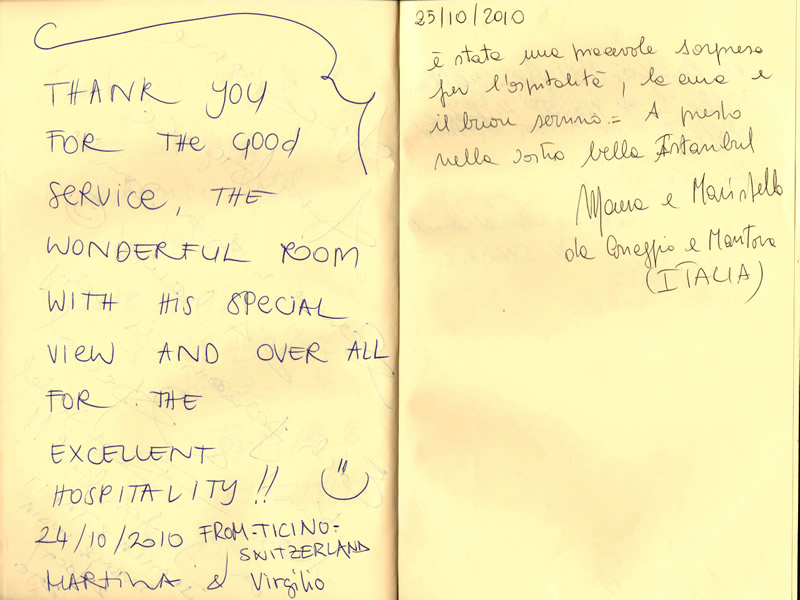 THANK YOU
FOR THE GOOD
SERVICE, THE
WONDERFUL ROOM
WITH HIS SPECIAL
VIEW AND OVER ALL
FOR THE
EXCELLENT
HOSPITALITY!!
24/10/2010 FROM-TICINO-
SWITZERLAND
MARTINA & Virgilio
25/10/2010
è stata una piacevole sorpresa
per l'ospitalità, la cura e
il buon servizio.= A presto
nella vostra bella Istanbul
e Maristella
da Correggio e Mantova
(ITALIA)